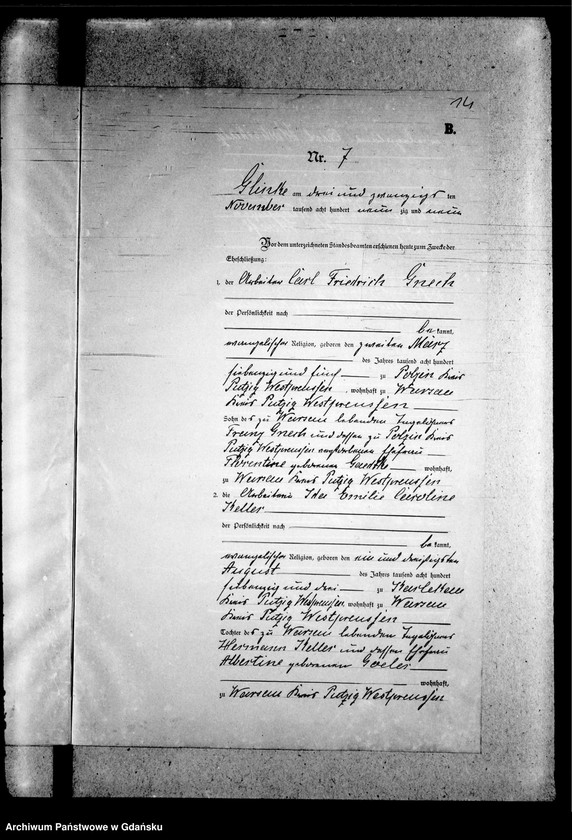 14
B.
Nr. 7
Glinke am drei und zwanzigsten
November tausend acht hundert neunzig und neun
Vor dem unterzeichneten Standesbeamten erschienen heute zum Zwecke der
Eheschließung:
1. der Arbeiter Carl Friedrich Gnech
der Persönlichkeit nach
be kannt,
evangelischer Religion, geboren den zweiten März
des Jahres tausend acht hundert
siebenzig und fünf zu Polzin Kreis
Putzig Westpreussen, wohnhaft zu
Kreis Putzig Westpreussen
Sohn des zu lebenden
Franz Gnech und dessen zu Polzin Kreis
Putzig Westpreussen verstorbenen Ehefrau
Florentine geborenen wohnhaft,
zu Kreis Putzig Westpreussen
2. die Arbeiterin Ida Emilie Caroline
Keller
der Persönlichkeit nach
be kannt,
evangelischer Religion, geboren den ein und dreißigsten
August des Jahres tausend acht hundert
siebenzig und drei zu
Kreis Putzig Westpreussen, wohnhaft zu
Kreis Putzig Westpreussen
Tochter des zu lebenden
Hermann Keller und dessen Ehefrau
Albertine geborenen
wohnhaft,
zu Kreis Putzig Westpreussen
Archiwum Państwowe w Gdańsku